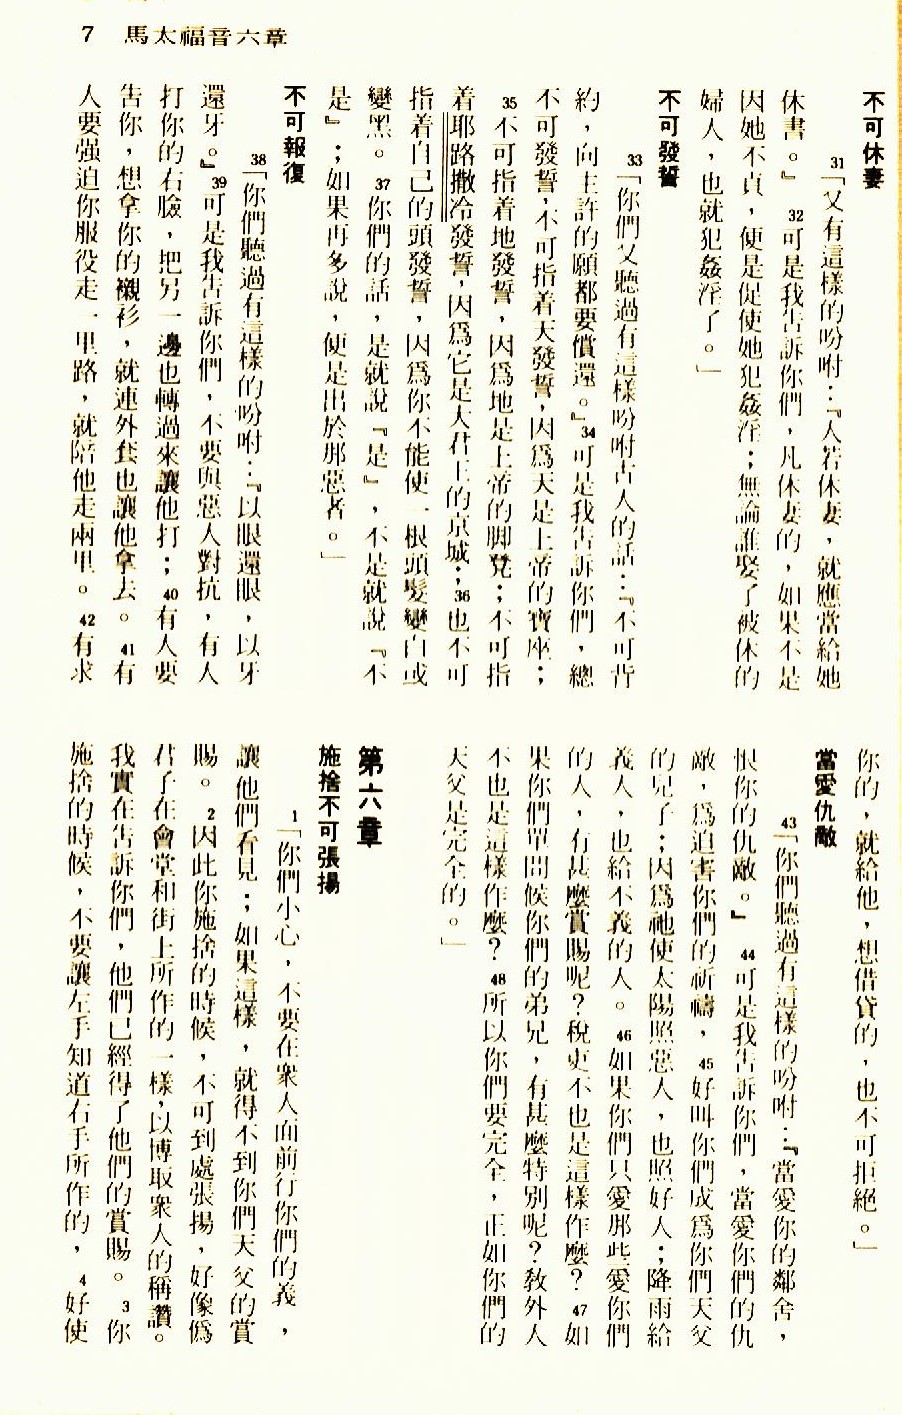 7 馬太福音六章
不可休妻
31「又有這樣的吩咐：『人若休妻，就應當給她
休書。』32可是我告訴你們，凡休妻的，如果不是
因她不貞，便是促使她犯姦淫；無論誰娶了被休的
婦人，也就犯姦淫了。」
不可發誓
33「你們又聽過有這樣吩咐古人的話：『不可背
約，向主許的願都要償還。』34可是我告訴你們，總
不可發誓，不可指着天發誓，因爲天是上帝的寶座；
35不可指着地發誓，因爲地是上帝的脚凳；不可指
着耶路撒冷發誓，因爲它是大君王的京城；36也不可
指着自己的頭發誓，因爲你不能使一根頭髮變白或
變黑。37你們的話，是就說『是』，不是就說『不
是』；如果再多說，便是出於那惡者。」
不可報復
38「你們聽過有這樣的吩咐：『以眼還眼，以牙
還牙。』39可是我告訴你們，不要與惡人對抗，有人
打你的右臉，把另一邊也轉過來讓他打；40有人要
告你，想拿你的襯衫，就連外套也讓他拿去。41有
人要强迫你服役走一里路，就陪他走兩里。42有求
你的，就給他，想借貸的，也不可拒絕。」
當愛仇敵
43「你們聽過有這樣的吩咐：『當愛你的鄰舍，
恨你的仇敵。』44可是我告訴你們，當愛你們的仇
敵，爲迫害你們的祈禱，45好叫你們成爲你們天父
的兒子；因爲祂使太陽照惡人，也照好人；降雨給
義人，也給不義的人。46如果你們只愛那些愛你們
的人，有甚麼賞賜呢？稅吏不也是這樣作麼？47如
果你們單問候你們的弟兄，有甚麼特別呢？教外人
不也是這樣作麼？48所以你們要完全，正如你們的
天父是完全的。」
第六章
施捨不可張揚
1「你們小心，不要在衆人面前行你們的義，
讓他們看見；如果這樣，就得不到你們天父的賞
賜。2因此你施捨的時候，不可到處張揚，好像僞
君子在會堂和街上所作的一樣，以博取衆人的稱讚。
我實在告訴你們，他們已經得了他們的賞賜。3你
施捨的時候，不要讓左手知道右手所作的，4好使